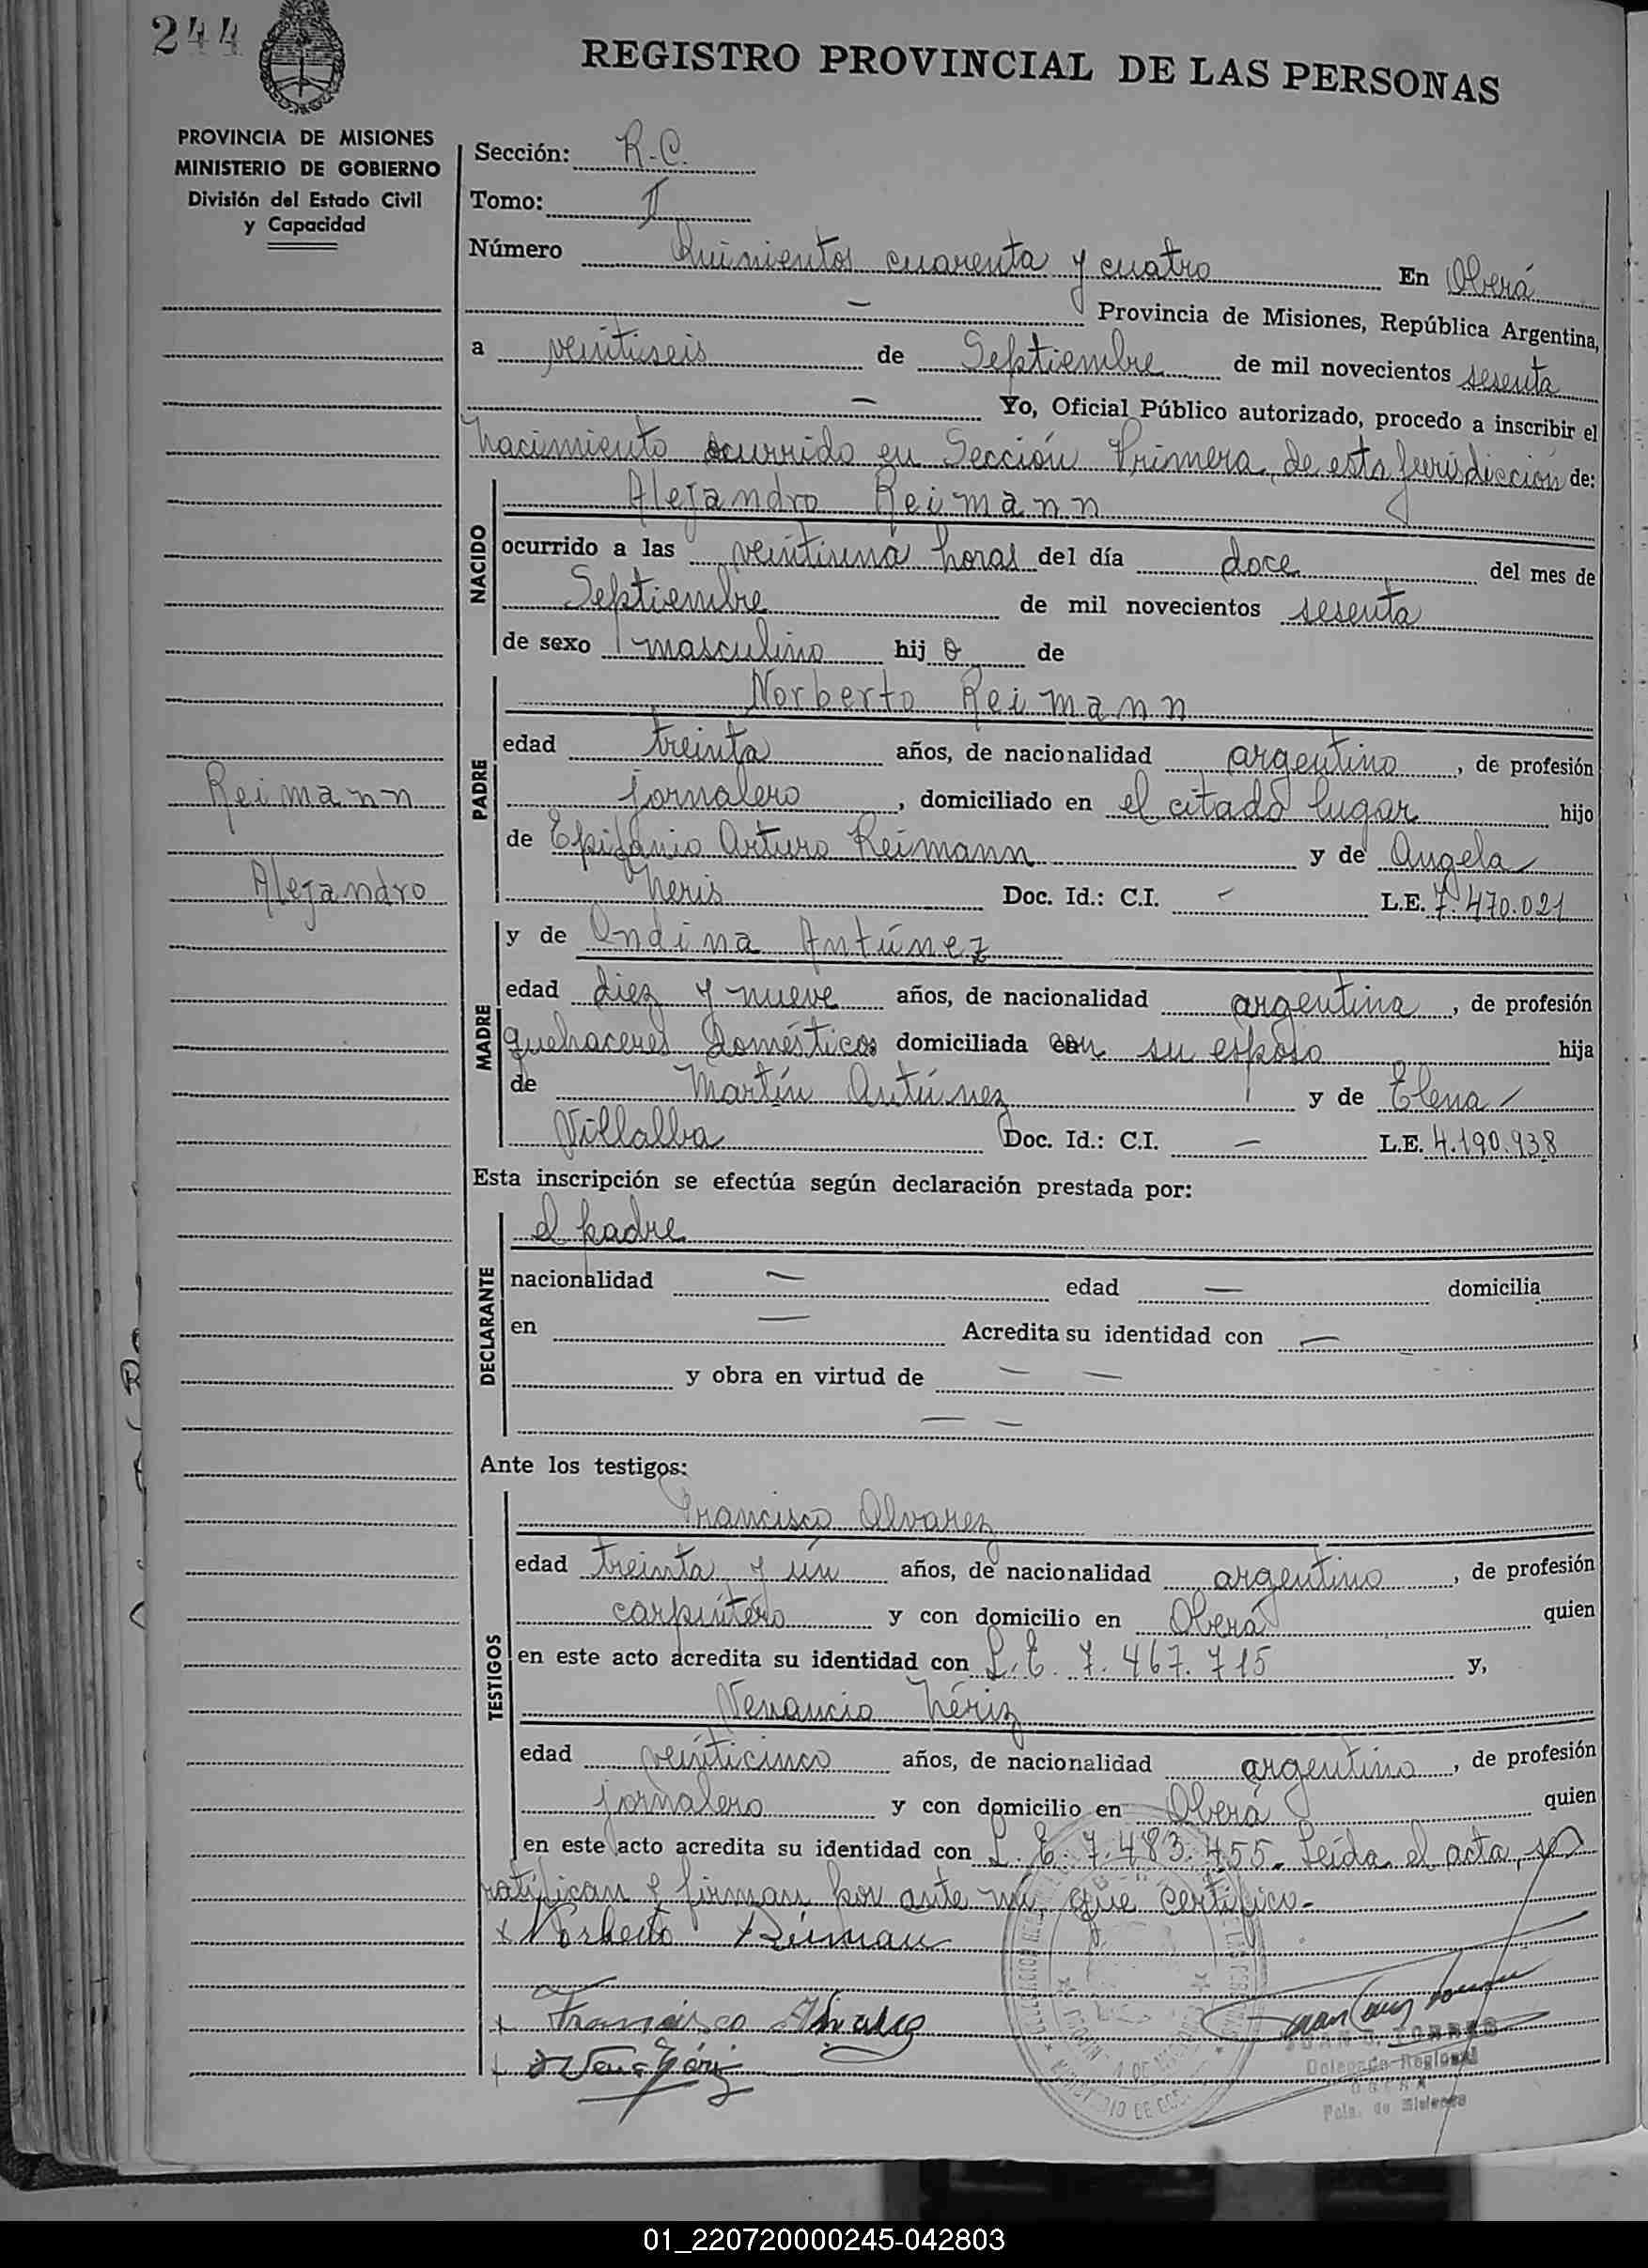 244
REGISTRO PROVINCIAL DE LAS PERSONAS
PROVINCIA DE MISIONES
MINISTERIO DE GOBIERNO
División del Estado Civil
y Capacidad
Sección: R.C.
Tomo: II
Número Quinientos cuarenta y cuatro En Oberá
— Provincia de Misiones, República Argentina,
a veintiseis de Septiembre de mil novecientos sesenta
— Yo, Oficial Público autorizado, procedo a inscribir el
nacimiento ocurrido en Sección Primera, de esta jurisdicción de:
NACIDO
Alejandro Reimann
ocurrido a las veintiuna horas del día doce del mes de
Septiembre de mil novecientos sesenta
de sexo masculino hij o de
PADRE
Norberto Reimann
edad treinta años, de nacionalidad argentino, de profesión
Reimann
jornalero, domiciliado en el citado lugar hijo
de Epifanio Arturo Reimann y de Angela
Alejandro
Neris Doc. Id.: C.I. — L.E. 7.470.021
MADRE
y de Ondina Antúnez
edad diez y nueve años, de nacionalidad argentina, de profesión
quehaceres domésticos domiciliada con su esposo hija
de Martín Antúnez y de Elena
Villalba Doc. Id.: C.I. — L.E. 4.190.938
Esta inscripción se efectúa según declaración prestada por:
DECLARANTE
el padre
nacionalidad — edad — domicilia
en — Acredita su identidad con —
y obra en virtud de — —
— —
Ante los testigos:
TESTIGOS
Francisco Alvarez
edad treinta y un años, de nacionalidad argentino, de profesión
carpintero y con domicilio en Oberá quien
en este acto acredita su identidad con L.E. 7.467.715 y,
Venancio Nériz
edad veinticinco años, de nacionalidad argentino, de profesión
jornalero y con domicilio en Oberá quien
en este acto acredita su identidad con L.E. 7.483.455. Leída el acta, se
ratifican y firman por ante mí, que certifico.-
x Norberto Reiman
x Francisco Alvarez
JUAN TORRES
Delegado Regional
OBERA
Pcia. de Misiones
01_220720000245-042803